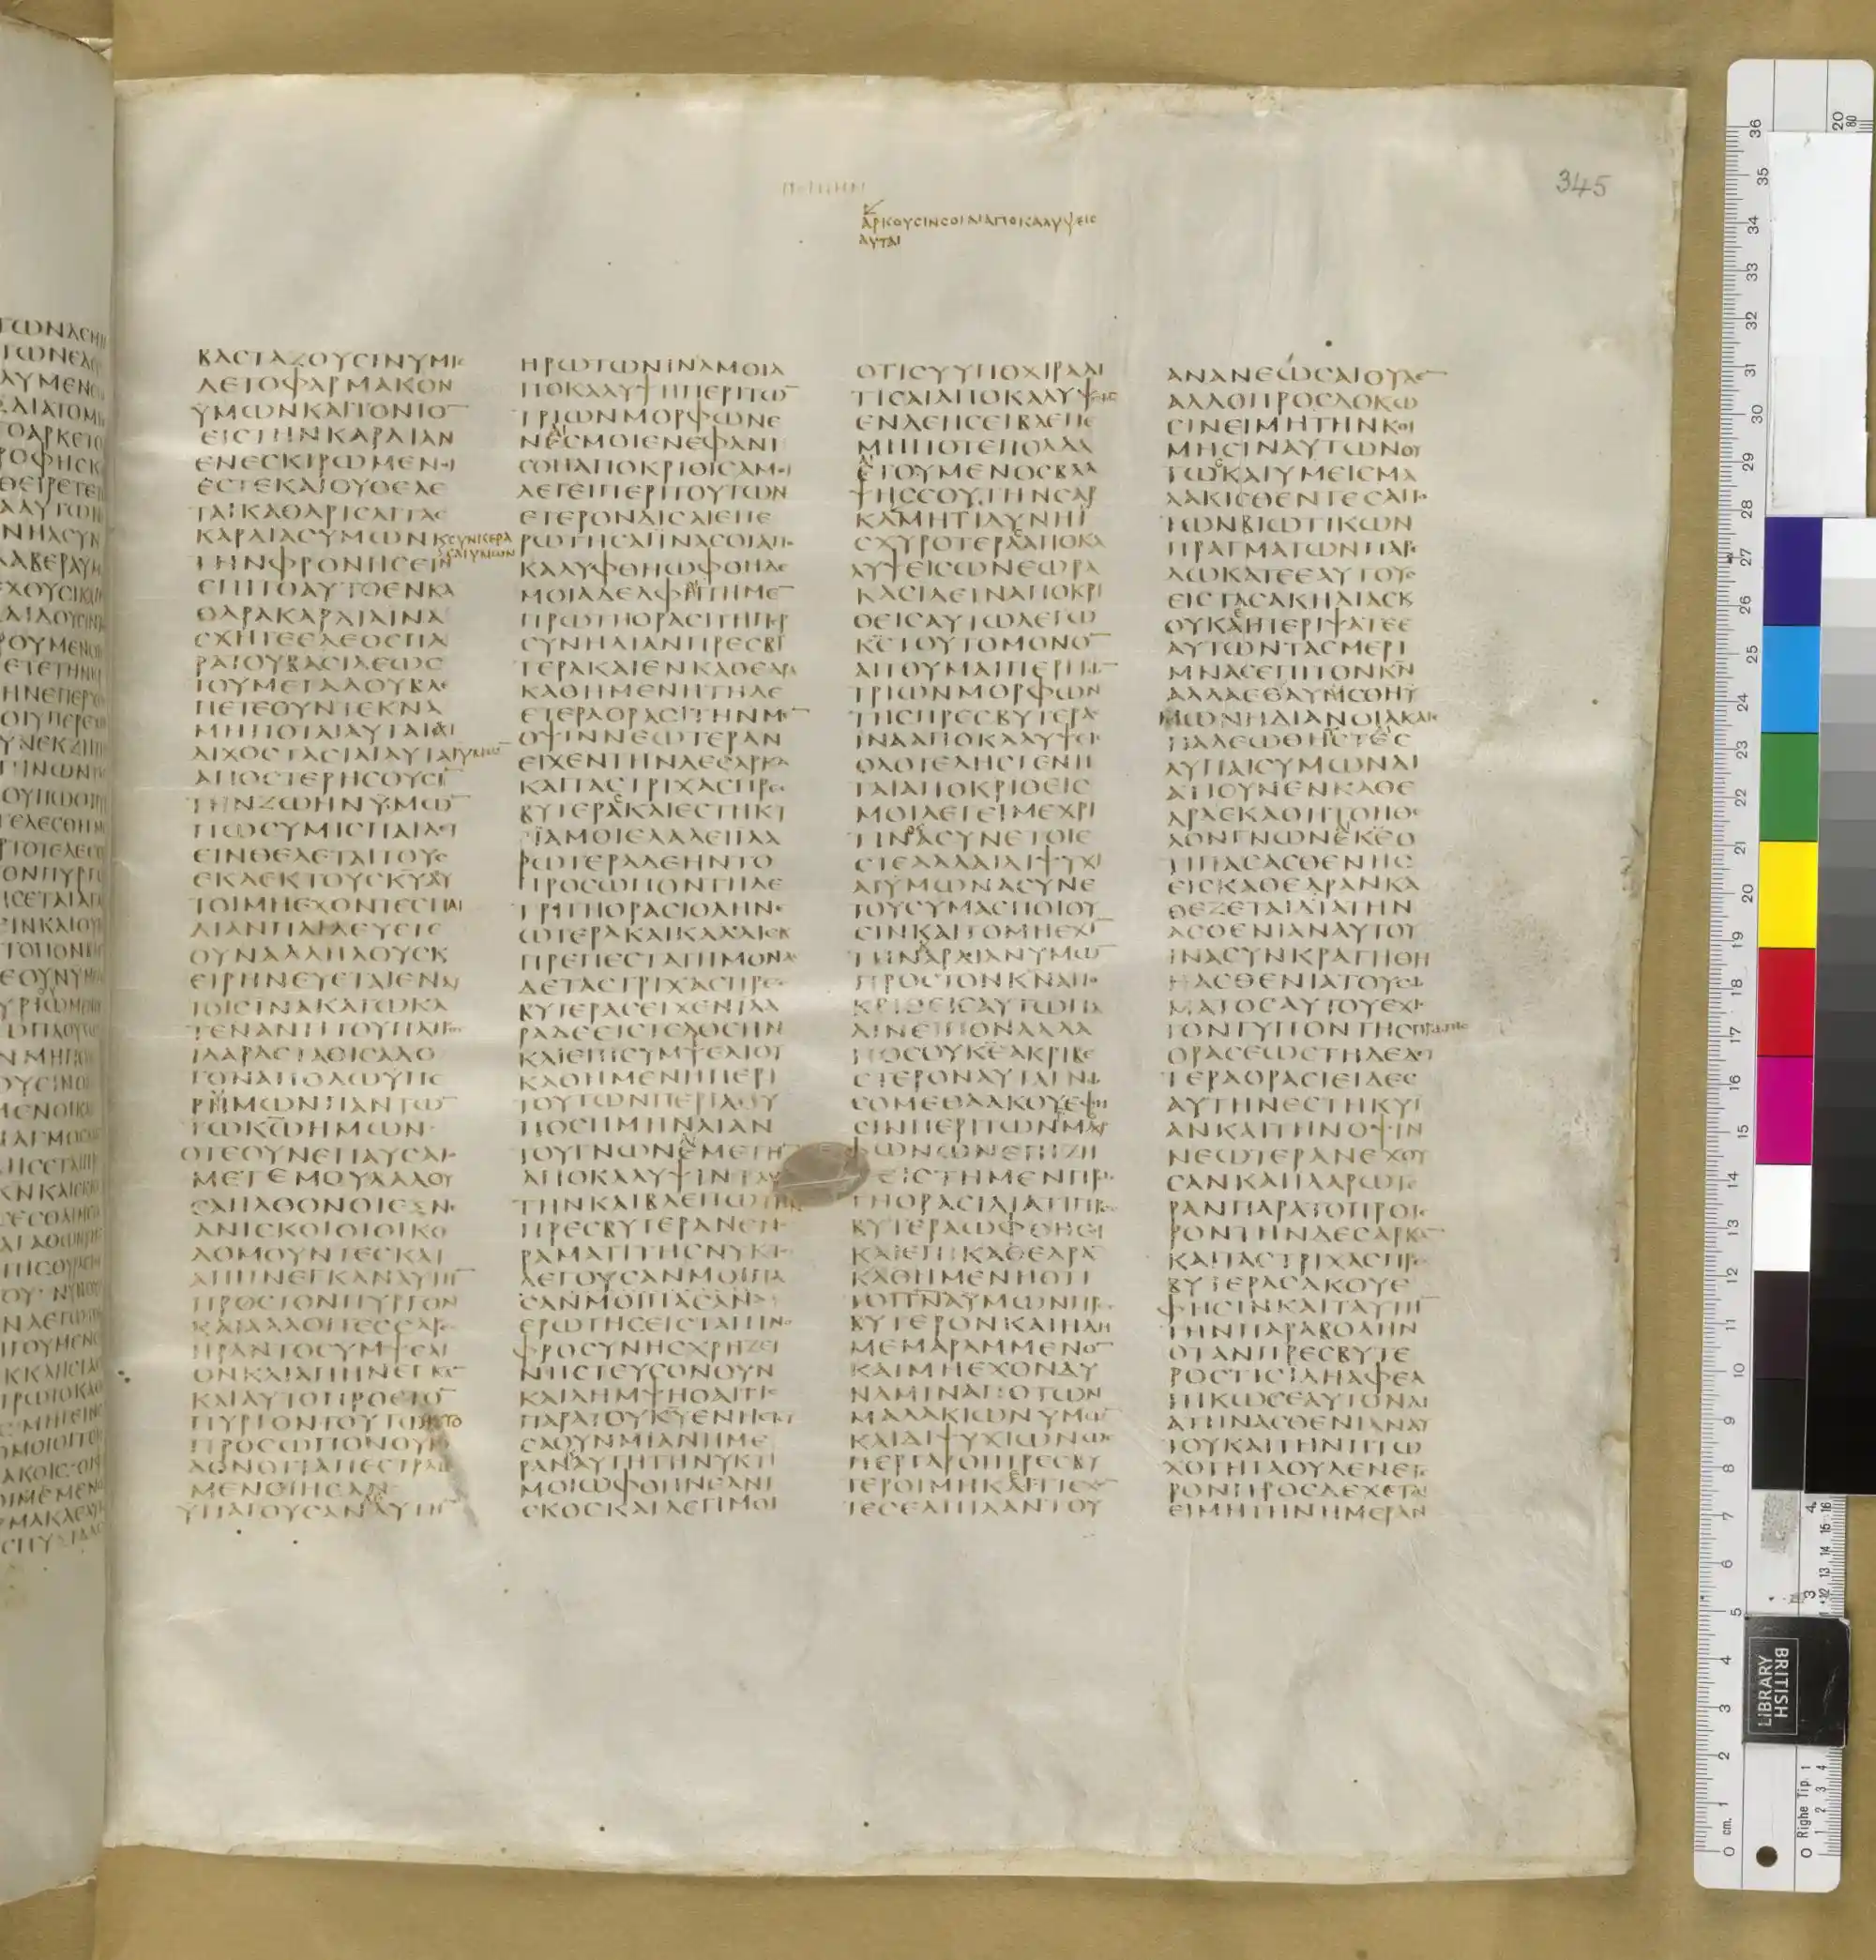 345
ΑΡΚΟΥCΙΝCΟΙΑΙΑΠΟΚΑΛΥΨΕΙC
ΑΥΤΑΙ
ΒΑCΤΑΖΟΥCΙΝΥΜΙC
ΔΕΤΟΦΑΡΜΑΚΟΝ
ΥΜΩΝΚΑΙΤΟΝΙΟ̅
ΕΙCΤΗΝΚΑΡΔΙΑΝ
ΕΝΕCΚΙΡΩΜΕΝΟΙ
ΕCΤΕΚΑΙΟΥΘΕΛΕ
ΤΑΙΚΑΘΑΡΙCΑΙΤΑC
ΚΑΡΔΙΑCΥΜΩΝΚ CΥΝΚΕΡΑ
CΑΙΥΜΩΝ
ΤΗΝΦΡΟΝΗCΕΙΝ
ΕΠΙΤΟΑΥΤΟΕΝΚΑ
ΘΑΡΑΚΑΡΔΙΑΙΝΑ
CΧΗΤΕΕΛΕΟCΠΑ
ΡΑΤΟΥΒΑCΙΛΕΩC
ΤΟΥΜΕΓΑΛΟΥΒΛΕ
ΠΕΤΕΟΥΝΤΕΚΝΑ
ΜΗΠΟΤΑΙΑΥΤΑΙΑΙ
ΔΙΧΟCΤΑCΙΑΙΑΥΤΑΙΥΜΩ̅
ΑΠΟCΤΕΡΗCΟΥCΙ̅
ΤΗΝΖΩΗΝΥΜΩ̅
ΠΩCΥΜΙCΠΑΙΔΕΥ
ΕΙΝΘΕΛΕΤΑΙΤΟΥC
ΕΚΛΕΚΤΟΥCΚ̅Υ̅ΑΥ
ΤΟΙΜΗΕΧΟΝΤΕCΠΑΙ
ΔΙΑΝΠΑΙΔΕΥΕΤΕ
ΟΥΝΑΛΛΗΛΟΥCΚ
ΕΙΡΗΝΕΥΕΤΑΙΕΝΑΥ
ΤΟΙCΙΝΑΚΑΓΩΚΑ
ΤΕΝΑΝΤΙΤΟΥΠΑΤΡΟC
ΙΛΑΡΑCΤΑΘΙCΑΛΟ
ΓΟΝΑΠΟΔΩΥΠΕ
ΡΗΜΩΝΠΑΝΤΩ̅
ΤΩΚ̅Ω̅ΗΜΩΝ
ΟΤΕΟΥΝΕΠΑΥCΑΤΟ
ΜΕΤΕΜΟΥΛΑΛΟΥ
CΑΗΛΘΟΝΟΙΕΞΝΕ
ΑΝΙCΚΟΙΟΙΟΙΚΟ
ΔΟΜΟΥΝΤΕCΚΑΙ
ΑΠΗΝΕΓΚΑΝΑΥΤΗ̅
ΠΡΟCΤΟΝΠΥΡΓΟΝ
ΚΑΙΑΛΛΟΙΤΕCCΑΡΕC
ΗΡΑΝΤΟCΥΜΨΕΛΙ
ΟΝΚΑΙΑΠΗΝΕΓΚΑ̅
ΚΑΙΑΥΤΟΠΡΟCΤΟ̅
ΠΥΡΓΟΝΤΟΥΤΩΝΤΟ
ΠΡΟCΩΠΟΝΟΥΚΙ
ΔΟΝΟΤΙΑΠΕCΤΡΑΜ
ΜΕΝΟΙΗCΑΝ
ΥΠΑΓΟΥCΑΝΔΕΑΥΤΗ̅
ΗΡΩΤΩΝΙΝΑΜΟΙΑ
ΠΟΚΑΛΥΨΗΠΕΡΙΤΩ̅
ΤΡΙΩΝΜΟΡΦΩΝΕ
ΝΕCΜΟΙΕΝΕΦΑΝΙ
CΘΗΑΠΟΚΡΙΘΙCΑΜΟΙ
ΛΕΓΕΙΠΕΡΙΤΟΥΤΩΝ
ΕΤΕΡΟΝΔΙCΑΙΕΠΕ
ΡΩΤΗCΑΙΙΝΑCΟΙΑΠΟ
ΚΑΛΥΦΘΗΩΦΘΗΔΕ
ΜΟΙΑΔΕΛΦΟΙΤΗΜΕ̅
ΠΡΩΤΗΟΡΑCΙΤΗΠΕΡ
CΥΝΗΛΙΑΝΠΡΕCΒΥ
ΤΕΡΑΚΑΙΕΝΚΑΘΕΔΡΑ
ΚΑΘΗΜΕΝΗΤΗΔΕ
ΕΤΕΡΑΟΡΑCΙΤΗΝΜΕ̅
ΟΨΙΝΝΕΩΤΕΡΑΝ
ΕΙΧΕΝΤΗΝΔΕCΑΡΚΑ
ΚΑΙΤΑCΤΡΙΧΑCΠΡΕC
ΒΥΤΕΡΑCΚΑΙΕCΤΗΚΥ
ΙΑΜΟΙΕΛΑΛΕΙΙΛΑ
ΡΩΤΕΡΑΔΕΗΝΤΟ
ΠΡΟCΩΠΟΝΤΗΔΕ
ΤΡΙΤΗΟΡΑCΙΟΛΗΝΕ
ΩΤΕΡΑΚΑΙΚΑΛΛΙΕΚ
ΠΡΕΠΕCΤΑΤΗΜΟΝΑC
ΔΕΤΑCΤΡΙΧΑCΠΡΕC
ΒΥΤΕΡΑCΕΙΧΕΝΙΛΑ
ΡΑΔΕΕΙCΤΕΛΟCΗΝ
ΚΑΙΕΠΙCΥΜΨΕΛΙΟΥ
ΚΑΘΗΜΕΝΗΠΕΡΙ
ΤΟΥΤΩΝΠΕΡΙΛΥ
ΠΟCΗΜΗΝΛΙΑΝ
ΤΟΥΓΝΩΝΕΜΕΤΗ̅
ΑΠΟΚΑΛΥΨΙΝΤΑΥ
ΤΗΝΚΑΙΒΛΕΠΩΤΗΝ
ΠΡΕCΒΥΤΕΡΑΝΕΝΟ
ΡΑΜΑΤΙΤΗCΝΥΚΤΟC
ΛΕΓΟΥCΑΝΜΟΙΠΑ
CΑΝΜΟΙΠΑCΑΝ
ΕΡΩΤΗCΕΙCΤΑΠΙΝΟ
ΦΡΟCΥΝΗCΧΡΗΖΕΙ
ΝΗCΤΕΥCΟΝΟΥΝ
ΚΑΙΛΗΜΨΗΟΑΙΤΙC
ΠΑΡΑΤΟΥΚ̅Υ̅ΕΝΗCΤΕΥ
CΑΟΥΝΜΙΑΝΗΜΕ
ΡΑΝΑΥΤΗΤΗΝΥΚΤΙ
ΜΟΙΩΦΘΗΝΕΑΝΙ
CΚΟCΚΑΙΛΕΓΙΜΟΙ
ΟΤΙCΥΥΠΟΧΙΡΑΑΙ
ΤΙCΑΙΑΠΟΚΑΛΥΨΕΙC
ΕΝΔΕΗCΕΙΒΛΕΠΕ
ΜΗΠΟΤΕΠΟΛΛΑ
ΕΤΟΥΜΕΝΟCΒΛΑ
ΨΗCCΟΥΤΗΝCΑΡ
ΚΑΜΗΤΙΔΥΝΗΙ
CΧΥΡΟΤΕΡΑΑΠΟΚΑ
ΛΥΨΕΙCΩΝΕΩΡΑ
ΚΑCΙΔΕΙΝΑΠΟΚΡΙ
ΘΕΙCΑΥΤΩΛΕΓΩ
Κ̅Ε̅ΤΟΥΤΟΜΟΝΟ̅
ΑΙΤΟΥΜΑΙΠΕΡΙΤΩ̅
ΤΡΙΩΝΜΟΡΦΩΝ
ΤΗCΠΡΕCΒΥΤΕΡΑC
ΙΝΑΑΠΟΚΑΛΥΨΙC
ΟΛΟΤΕΛΗCΓΕΝΗ
ΤΑΙΑΠΟΚΡΙΘΕΙC
ΜΟΙΛΕΓΕΙΜΕΧΡΙ
ΤΙΝΟCΑCΥΝΕΤΟΙΕ
CΤΕΑΛΛΑΙΔΙΨΥΧΙ
ΑΙΥΜΩΝΑCΥΝΕ
ΤΟΥCΥΜΑCΠΟΙΟΥ
CΙΝΚΑΙΤΟΜΗΕΧΙ̅
ΤΗΝΚΑΡΔΙΑΝΥΜΩ̅
ΠΡΟCΤΟΝΚ̅Ν̅ΑΠΟ
ΚΡΙΘΕΙCΑΥΤΩΠΑ
ΛΙΝΕΙΠΟΝΑΛΛΑ
ΠΟCΟΥΚ̅Ε̅ΑΚΡΙΒΕ
CΤΕΡΟΝΑΥΤΑΓΝΩ
CΟΜΕΘΑΑΚΟΥΕΦΗ
CΙΝΠΕΡΙΤΩΝΜΟΡ
ΦΩΝΩΝΕΠΙΖΗ
ΤΕΙCΤΗΜΕΝΠΡΩ
ΤΗΟΡΑCΙΔΙΑΤΙΠΡΕC
ΒΥΤΕΡΑΩΦΘΗCΟΙ
ΚΑΙΕΠΙΚΑΘΕΔΡΑ̅
ΚΑΘΗΜΕΝΗΟΤΙ
ΤΟΠ̅Ν̅Α̅ΥΜΩΝΠΡΕC
ΒΥΤΕΡΟΝΚΑΙΗΔΗ
ΜΕΜΑΡΑΜΜΕΝΟ̅
ΚΑΙΜΗΕΧΟΝΔΥ
ΝΑΜΙΝΑΠΟΤΩΝ
ΜΑΛΑΚΙΩΝΥΜΩ̅
ΚΑΙΔΙΨΥΧΙΩΝΩC
ΠΕΡΓΑΡΟΙΠΡΕCΒΥ
ΤΕΡΟΙΜΗΚΕΤΙΕΧΟ̅
ΤΕCΕΛΠΙΔΑΝΤΟΥ
ΑΝΑΝΕΩCΑΙΟΥΔΕ̅
ΑΛΛΟΠΡΟCΔΟΚΩ
CΙΝΕΙΜΗΤΗΝΚΟΙ
ΜΗCΙΝΑΥΤΩΝΟΥ
ΤΩΚΑΙΥΜΕΙCΜΑ
ΛΑΚΙCΘΕΝΤΕCΑΠΟ
ΤΩΝΒΙΩΤΙΚΩΝ
ΠΡΑΓΜΑΤΩΝΠΑΡΕ
ΔΩΚΑΤΕΕΑΥΤΟΥC
ΕΙCΤΑCΑΚΗΔΙΑCΚ
ΟΥΚΕΠΕΡΙΨΑΤΕΕ
ΑΥΤΩΝΤΑCΜΕΡΙ
ΜΝΑCΕΠΙΤΟΝΚ̅Ν̅
ΑΛΛΑΕΘΑΥΜCΘΗΥ
ΜΩΝΗΔΙΑΝΟΙΑΚΑΙ
ΠΑΛΕΩΘΗCΤΕC
ΑΥΠΑΙCΥΜΩΝΔΙ
ΑΤΙΟΥΝΕΝΚΑΘΕ
ΔΡΑΕΚΑΘΗΤΟΗΘΕ
ΛΟΝΓΝΩΝΕΚ̅Ε̅Ο
ΤΙΠΑCΑCΘΕΝΗC
ΕΙCΚΑΘΕΔΡΑΝΚΑ
ΘΕΖΕΤΑΙΔΙΑΤΗΝ
ΑCΘΕΝΙΑΝΑΥΤΟΥ
ΙΝΑCΥΝΚΡΑΤΗΘΗ
ΗΑCΘΕΝΙΑΤΟΥCΩ
ΜΑΤΟCΑΥΤΟΥΕΧΙC
ΤΟΝΤΥΠΟΝΤΗCΠΡΩΤΗC
ΟΡΑCΕΩCΤΗΔΕΔΕΥ
ΤΕΡΑΟΡΑCΙΕΙΔΕC
ΑΥΤΗΝΕCΤΗΚΥΙ
ΑΝΚΑΙΤΗΝΟΨΙΝ
ΝΕΩΤΕΡΑΝΕΧΟΥ
CΑΝΚΑΙΙΛΑΡΩΤΕ
ΡΑΝΠΑΡΑΤΟΠΡΟΤΕ
ΡΟΝΤΗΝΔΕCΑΡΚΑ̅
ΚΑΙΤΑCΤΡΙΧΑCΠΡΕC
ΒΥΤΕΡΑCΑΚΟΥΕ
ΦΗCΙΝΚΑΙΤΑΥΤΗ̅
ΤΗΝΠΑΡΑΒΟΛΗΝ
ΟΤΑΝΠΡΕCΒΥΤΕ
ΡΟCΤΙCΙΔΗΑΦΕΛ
ΠΙΚΩCΕΑΥΤΟΝΔΙ
ΑΤΗΝΑCΘΕΝΙΑΝΑΥ
ΤΟΥΚΑΙΤΗΝΠΤΩ
ΧΟΤΗΤΑΟΥΔΕΝΕΤΕ
ΡΟΝΠΡΟCΔΕΧΕΤΑΙ
ΕΙΜΗΤΗΝΗΜΕΡΑΝ
BRITISH
LIBRARY